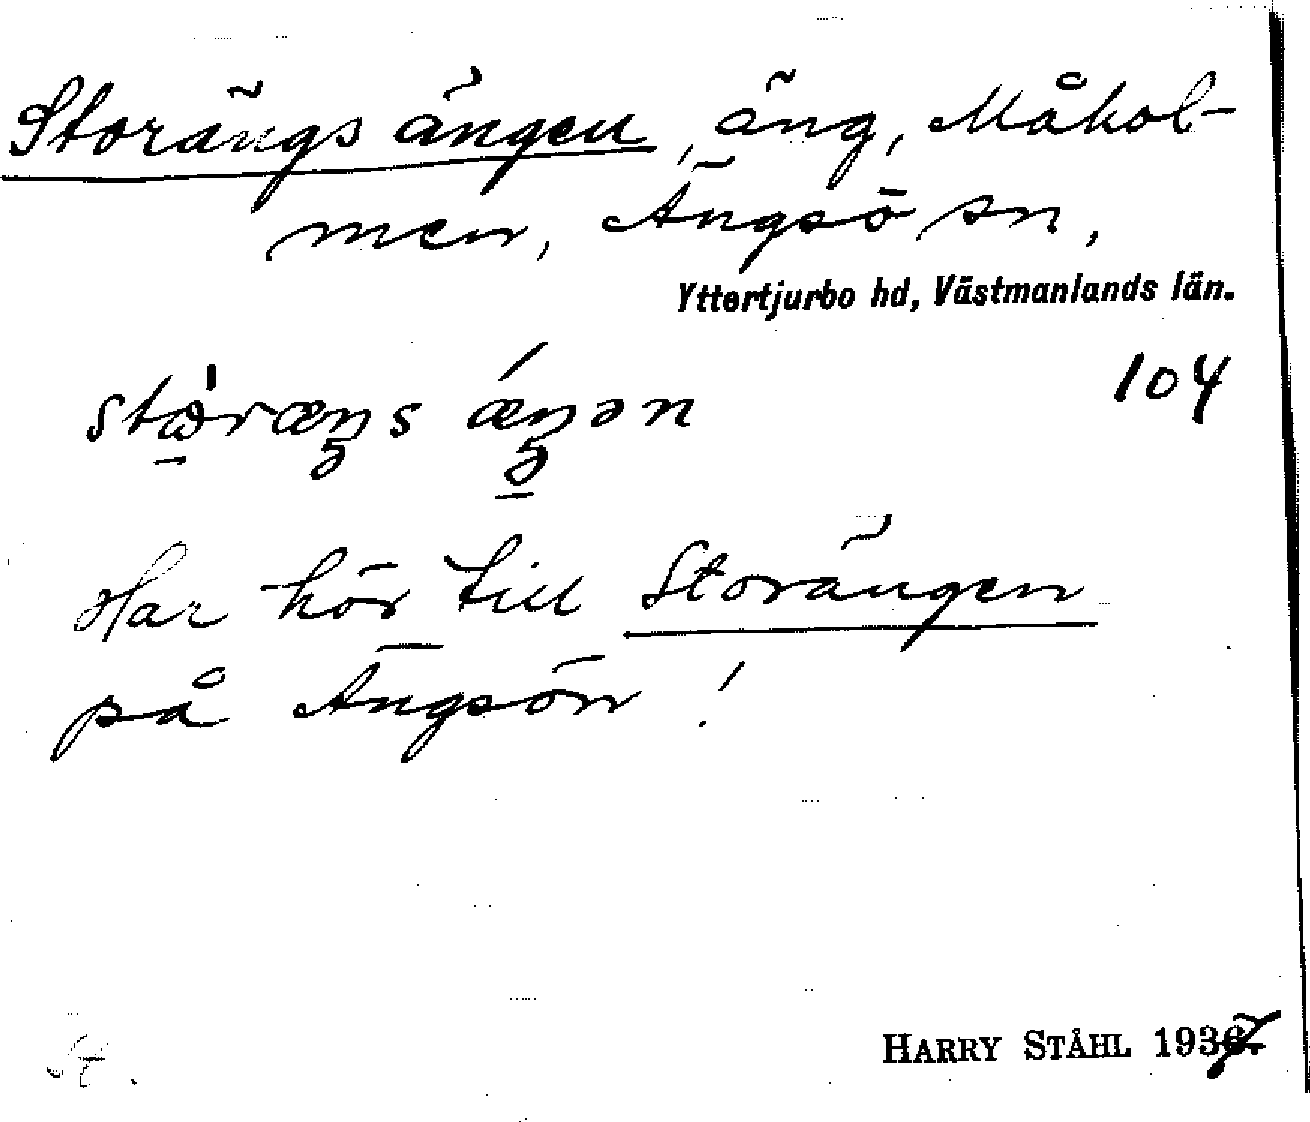 Storängsängen, äng, Måhol-
men, Ängsö sn,
Yttertjurbo hd, Västmanlands län.
104
Har hör till Storängen
på Ängsön!
HARRY STÅHL 1937
St.